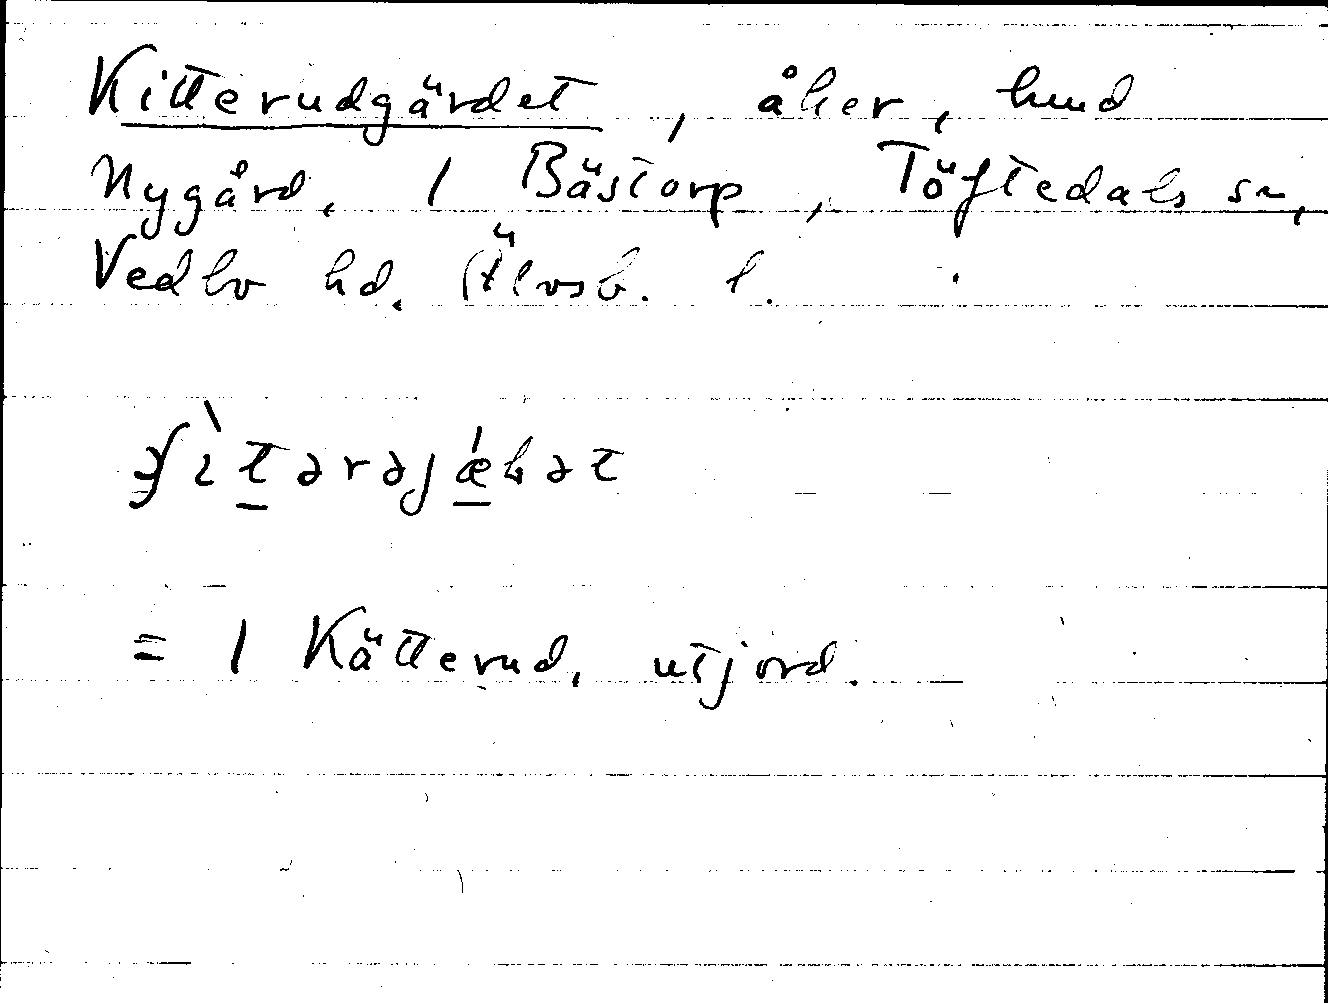 Kitterudgärdet, åker, hmd
Nygård, 1 Bästorp, Töftedals sn,
Vedbo hd. Älvsb. l.
= 1 Kätterud, utjord.